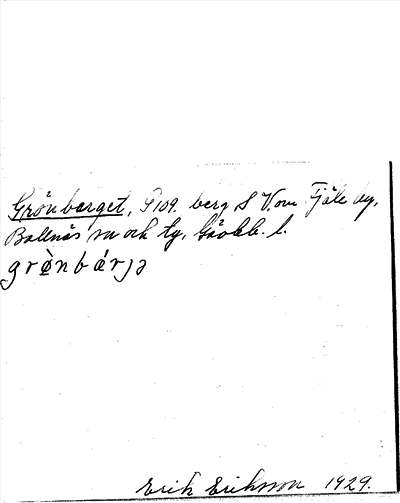 Grönberget, G 109. berg S V. om Fjäle by,
Bollnäs sn och tg, Gävleb. l.
grònbárjə
Erik Eriksson 1929.